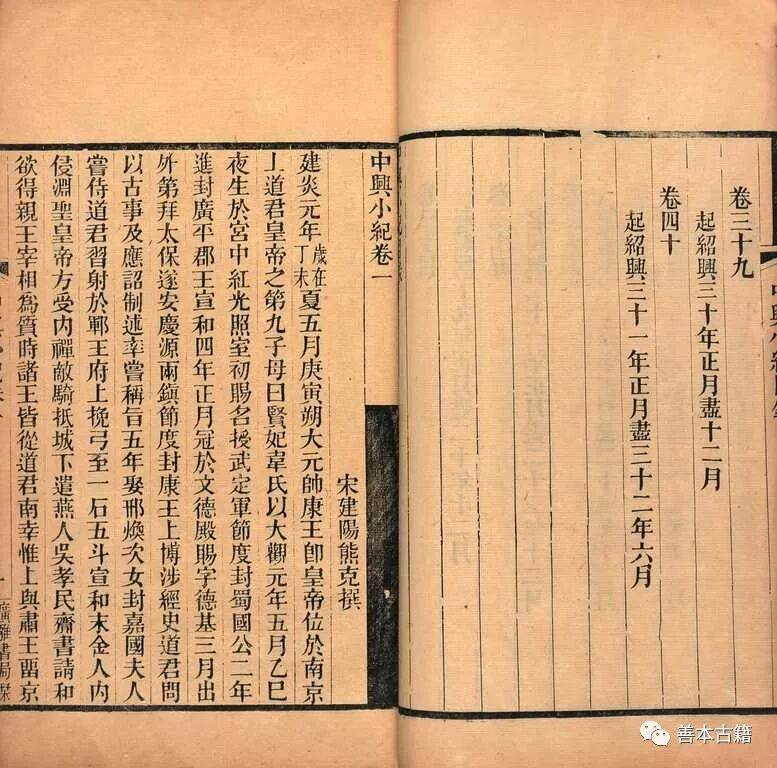 卷三十九
起紹興三十年正月盡十二月
卷四十
起紹興三十一年正月盡三十二年六月
中興小紀卷一
宋建陽熊克撰
建炎元年歲在丁未夏五月庚寅朔大元帥康王卽皇帝位於南京
上道君皇帝之第九子母曰賢妃韋氏以大觀元年五月乙巳
夜生於宮中紅光照室初賜名授武定軍節度封蜀國公二年
進封廣平郡王宣和四年正月冠於文德殿賜字德基三月出
外第拜太保遂安慶源兩鎮節度封康王上博涉經史道君問
以古事及應詔制述率嘗稱旨五年娶邢煥次女封嘉國夫人
嘗侍道君習射於鄆王府上挽弓至一石五斗宣和末金人內
侵淵聖皇帝方受內禪敵騎抵城下遣燕人吳孝民齎書請和
欲得親王宰相爲質時諸王皆從道君南幸惟上與肅王畱京
一
廣雅書局栞
善本古籍